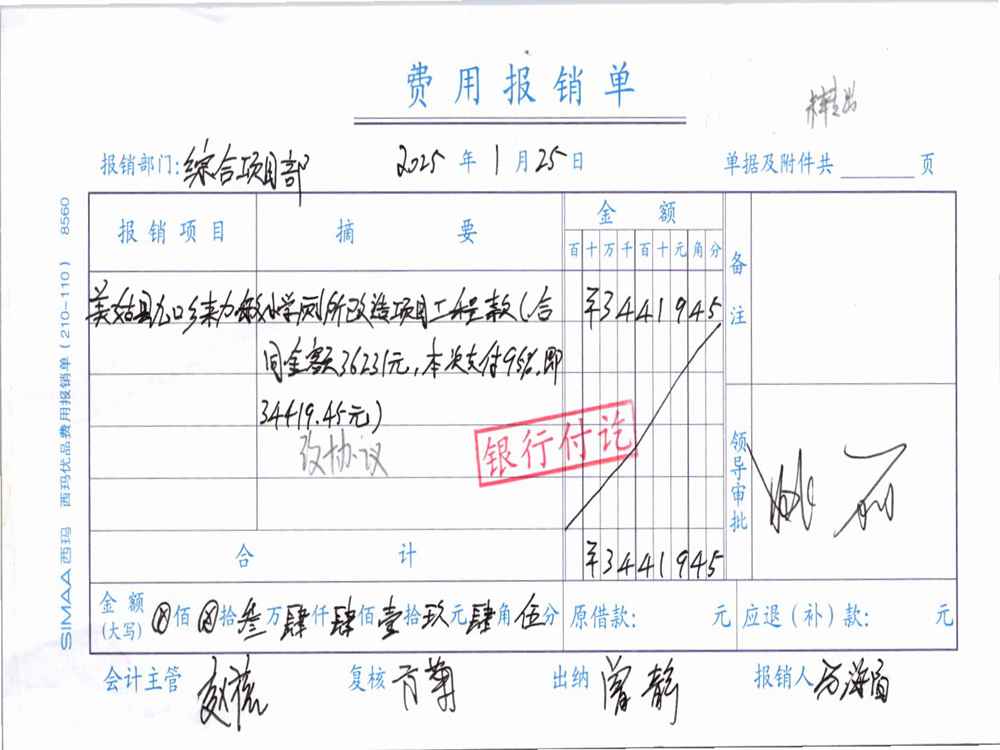 费用报销单
报销部门:综合项目部 2025年1月25日 单据及附件共 页
报销项目 摘要 金额 备注
百十万千百十元角分
美姑县九口乡来力敏小学厕所改造项目工程款(合 ¥3441945
同金额36231元,本次支付95%,即
34419.45元)
改协议
银行付讫
领导审批
合计 ¥3441945
金额(大写) ⊗佰⊗拾叁万肆仟肆佰壹拾玖元肆角伍分 原借款: 元 应退(补)款: 元
会计主管 复核 出纳 曾静 报销人
SIMAA西玛 西玛优品费用报销单(210-110) 8560